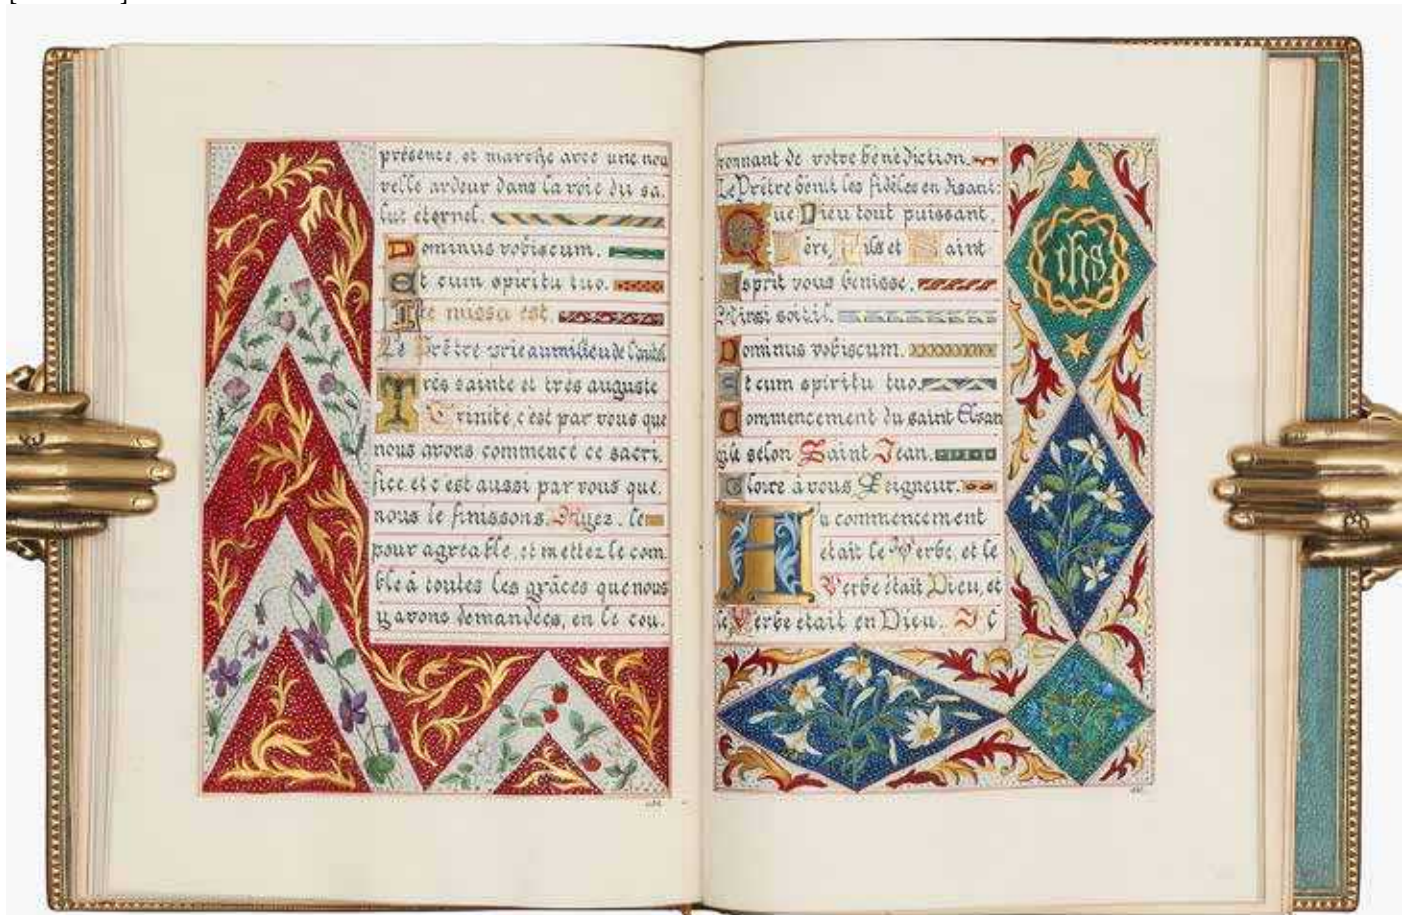 présente, et marche avec une nou
velle ardeur dans la voie du sa.
lut éternel.
Dominus vobiscum.
Et cum spiritu tuo.
Ite missa est.
Le Prêtre prie au milieu de l'autel
Très sainte et très auguste
Trinité, c'est par vous que
nous avons commencé ce sacri.
fice et c'est aussi par vous que.
nous le finissons. Ayez. le
pour agréable, et mettez le com.
ble à toutes les grâces que nous
y avons demandées, en le cou.
ronnant de votre bénédiction.
Le Prêtre bénit les fidèles en disant:
Que Dieu tout puissant,
Père, Fils et Saint
Esprit vous bénisse.
Ainsi soit il.
Dominus vobiscum.
Et cum spiritu tuo.
Commencement du saint Evan
gile selon Saint Jean.
Gloire à vous Seigneur.
Au commencement
était le Verbe, et le
Verbe était Dieu, et
le Verbe etait en Dieu. Il
ihs